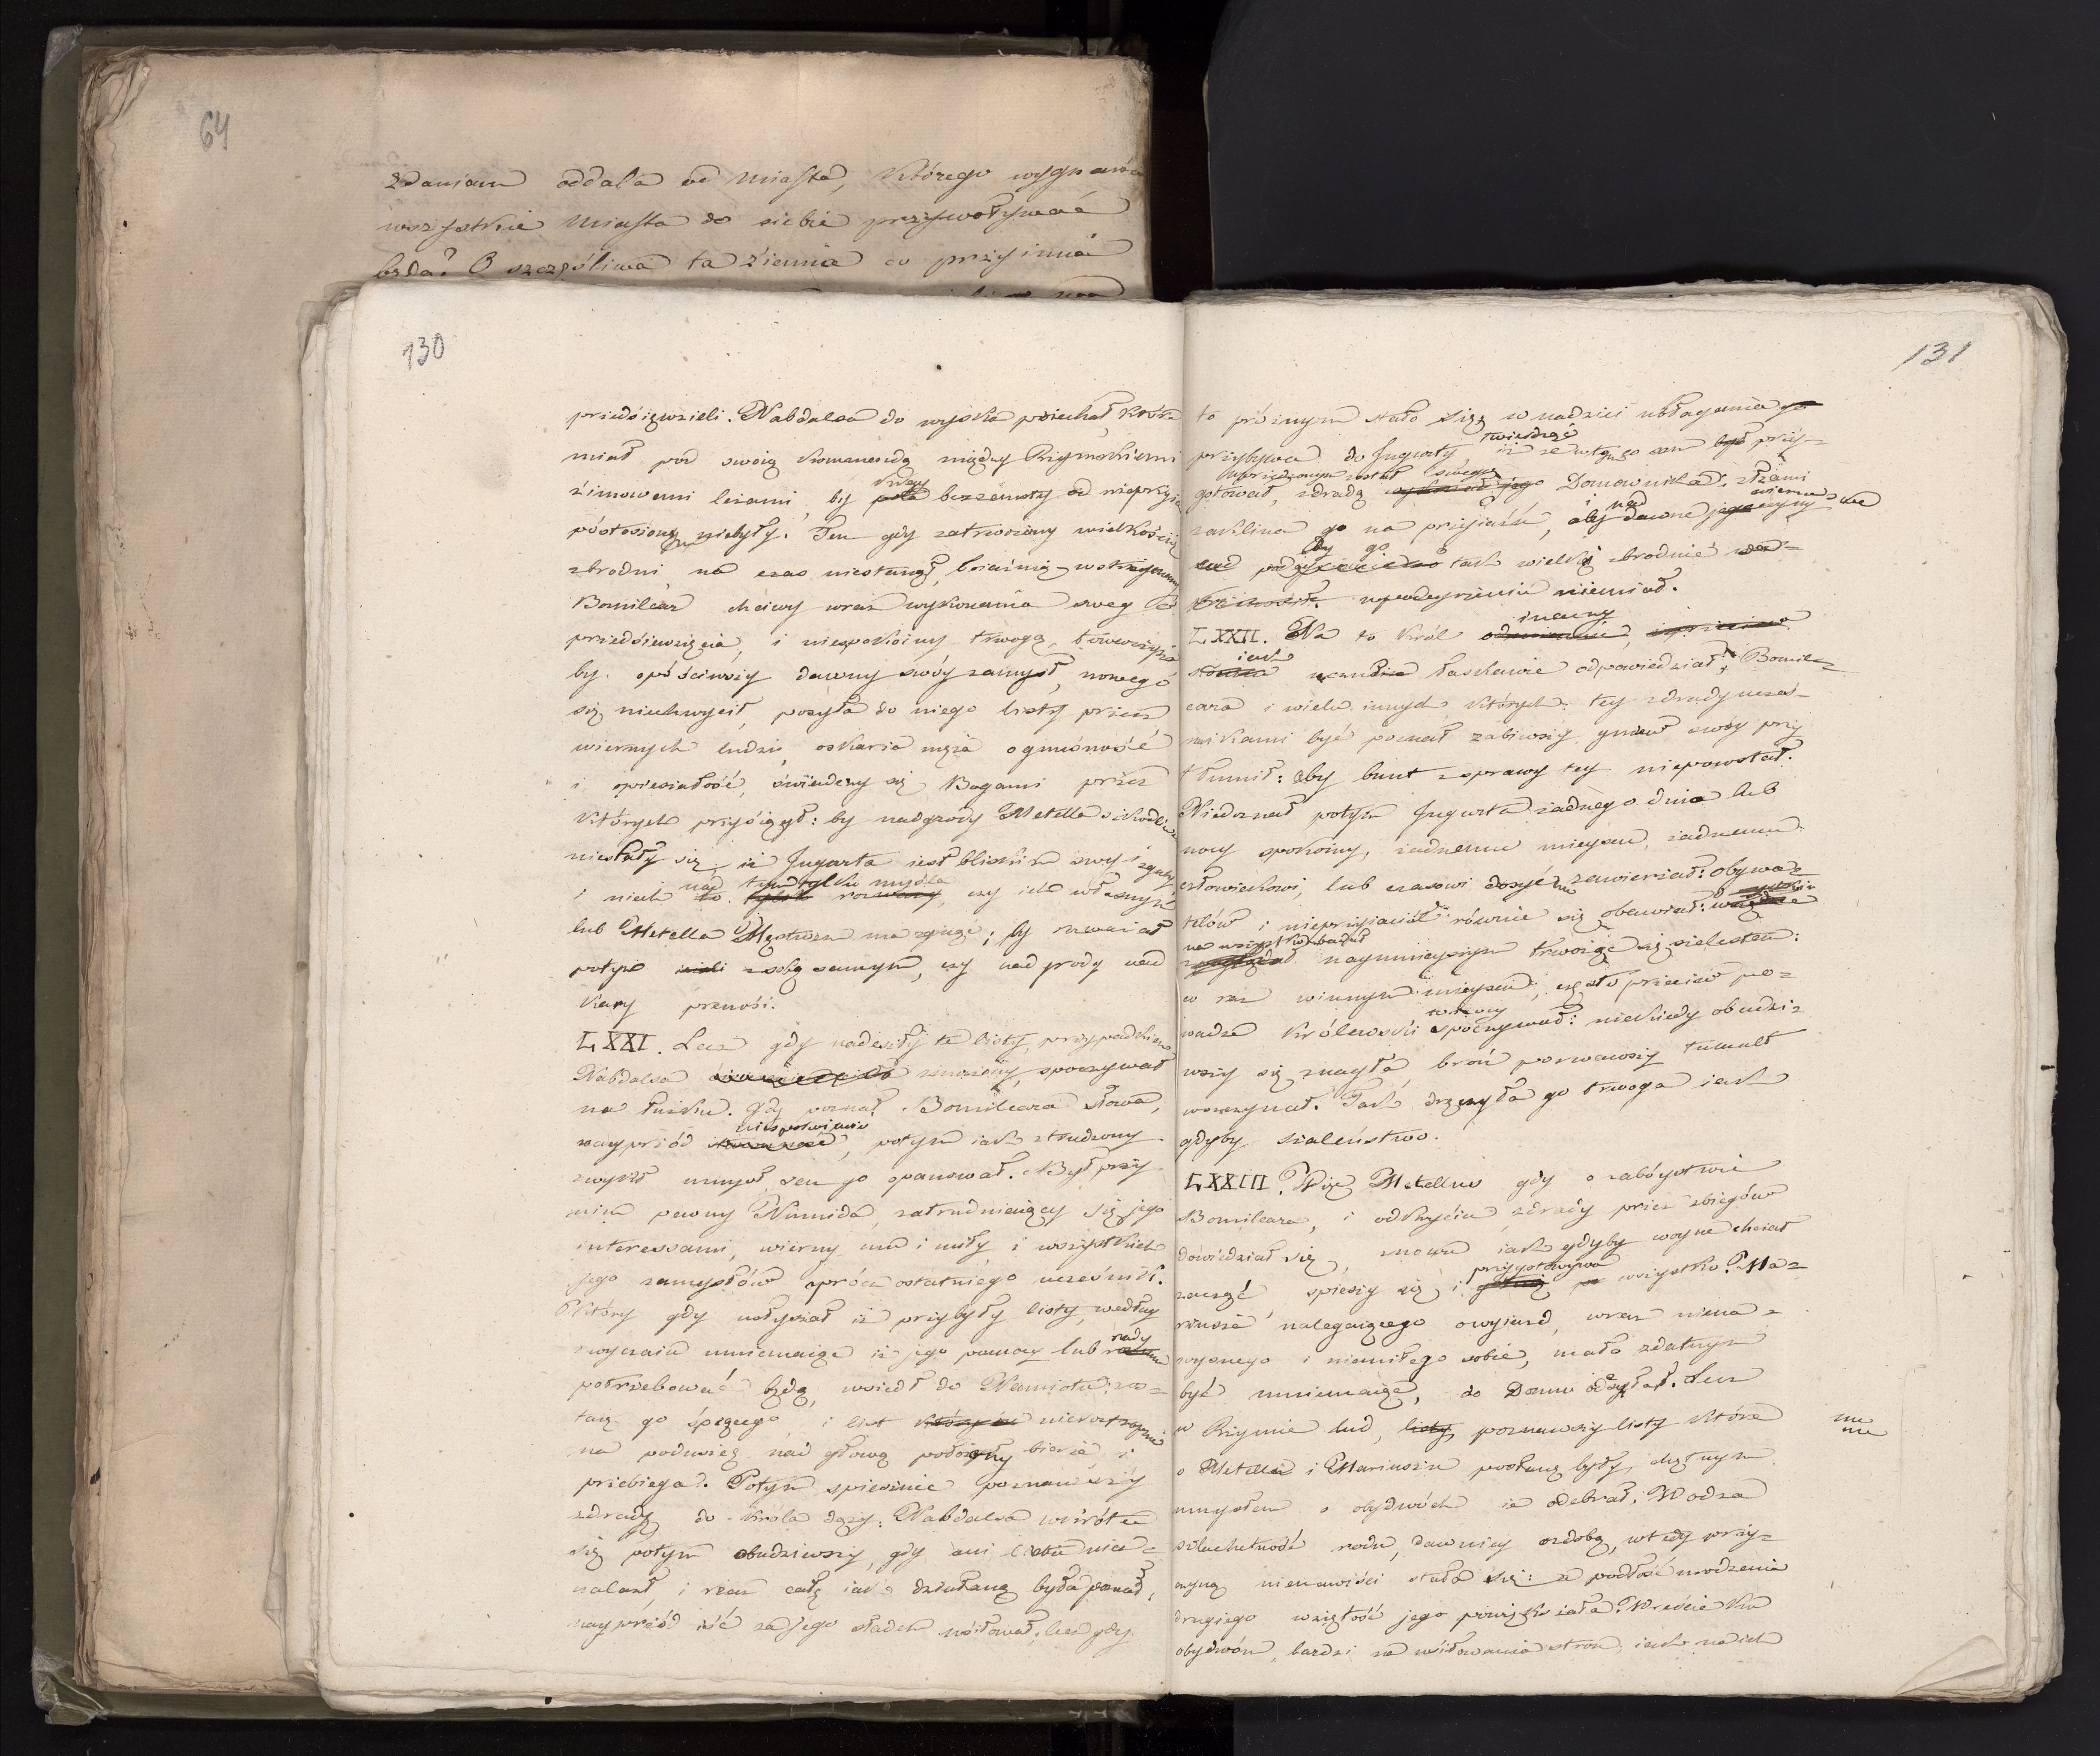 64
zdaniem oddala od Miasta, którego wygnańca
wszystkie Miasta do siebie przywoływać
będą? O szczęśliwa ta ziemia co przyimie
130
przedsięwzieli. Nabdalsa do wojska poiechał, które
miał pod swoią kommendą między Rzymskiemi
zimowemi leżami, by kraj bezzemsty od nieprzyia
pustoszony niebyły. Ten gdy zatrwożony wielkością
zbrodni, na czas niestanął, boiaźnią wstrzymany
Bomilcar chciwy wraz wykonania sweg o
przedsiewzięcia, i niespokoiny trwogą towarzysza
by opuściwszy dawny swóy zamysł, nowego
się niechwycił, posyła do niego listy przez
wiernych ludzi, oskarża męża o gnuśność
i opieszałość, świadczy się Bogami przez
których przysiągł: by nadgrody Metella szkodliwe
niestały się, iż Jugurta iest bliskim swey zguby
i niech nad tym tylko myśla, czy ich własnym
lub Metella Męstwem ma zginąć; by rozważał
potym z sobą samym, czy nadgrody nad
kary przenosi.
LXXI. Lecz gdy nadeszły te listy, przypadkiem
Nabdalsa zmorzony, spoczywał
na łóżku. Gdy poznał Bomilcara słowa,
nayprzód niespokojność, potym iak strudzony
zwykł umysł sen go opanował. Był przy
nim pewny Numida, zatrudniaiący się jego
interessami, wierny mu i miły, i wszystkich
jego zamysłów oprócz ostatniego uczesnik.
Który gdy usłyszał iż przybyły listy, według
zwyczaiu mniemaiąc iż jego pomocy lub rady
potrzebować będą, wszedł do Namiotu: zas=
taię go śpiącego, i list nieostrożnie
na poduszcę nad głową położony bierze, i
przebiega. Potym spiesznie poznawszy
zdradę do króla dąży. Nabdalsa wkrótce
się potym obudziwszy, gdy ani listu nie=
nalazł, i rzecz całą iak działaną była poznał,
nayprzód iść za jego śladem usiłował, lecz gdy
131
to próżnym stało się, w nadziei ubłagania
przybywa do Jugurty, twierdząc iż ze wtym co sam przy=
gotował, uprzedzonym został zdradą swego Domownika: złzami
zaklina go na przyiaźń, i na dawne wierne czyny we
by go o tak wielką zbrodnię
w podeyrzeniu niemiał.
LXXII. Na to król inaczey
iak uczuł łaskawie odpowiedział: Bomil=
cara i wielu innych których tey zdrady uczes=
nikami być poznał zabiwszy gniew swóy przy
tłumił: aby bunt z sprawy tey niepowstał.
Niedoznał potym Jugurta żadnego dnia lub
nocy spokoiny, żadnemu mieyscu, żadnemu
człowiekowi, lub czasowi dosyć niezawierzał: obywa=
telów i nieprzyiaciół równie się obawiał:
na wszystko baczał naymnieyszym trwożąc się szelestem:
w raz w innym mieyscu, często przeciw po=
wadze królewski w nocy spoczywał: niekiedy obudzi=
wszy się, znagła broń porwawszy tumult
wszczynał. Tak dręczyła go trwoga iak
gdyby szaleństwo.
LXXIII. Więc Metellus gdy o zabóystwie
Bomilcara, i odkryciu zdrady przez zbiegów
dowiedział się, znowu iak gdyby woynę chciał
zacząć, spieszy się i przygotowywa wszystko. Ma=
riusza nalegaiącego o wyiazd, wraz niena=
wysnego i niemiłego sobie, mało zdatnym
być mniemaiąc, do Domu odsyłał. Lecz
w Rzymie lud, poznawszy listy które
o Metellu i Mariuszu posłane były, chętnym
umysłem o obydwóch ie odebrał. Wodza
szlachetność rodu, dawniey ozdobą, wtedy przy=
czyną nienawiści stała się: a podłość urodzenia
drugiego wziętość jego powiększała. Wreście ku
obydwóm, bardzi za usiłowania stron, iak na ich